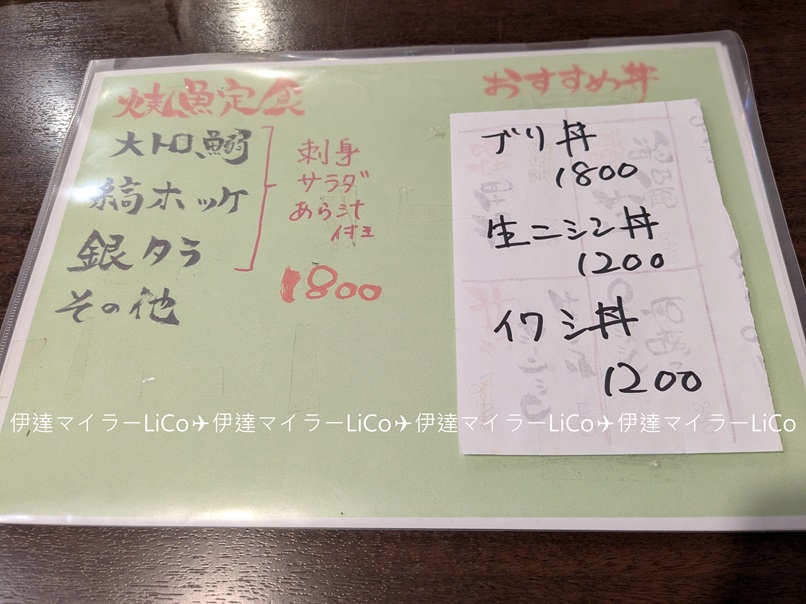 焼魚定食
大トロ鰯
縞ホッケ
銀タラ
その他
刺身
サラダ
あら汁
付
1800
おすすめ丼
ブリ丼
1800
生ニシン丼
1200
イワシ丼
1200
伊達マイラーLiCo✈伊達マイラーLiCo✈伊達マイラーLiCo✈伊達マイラーLiCo